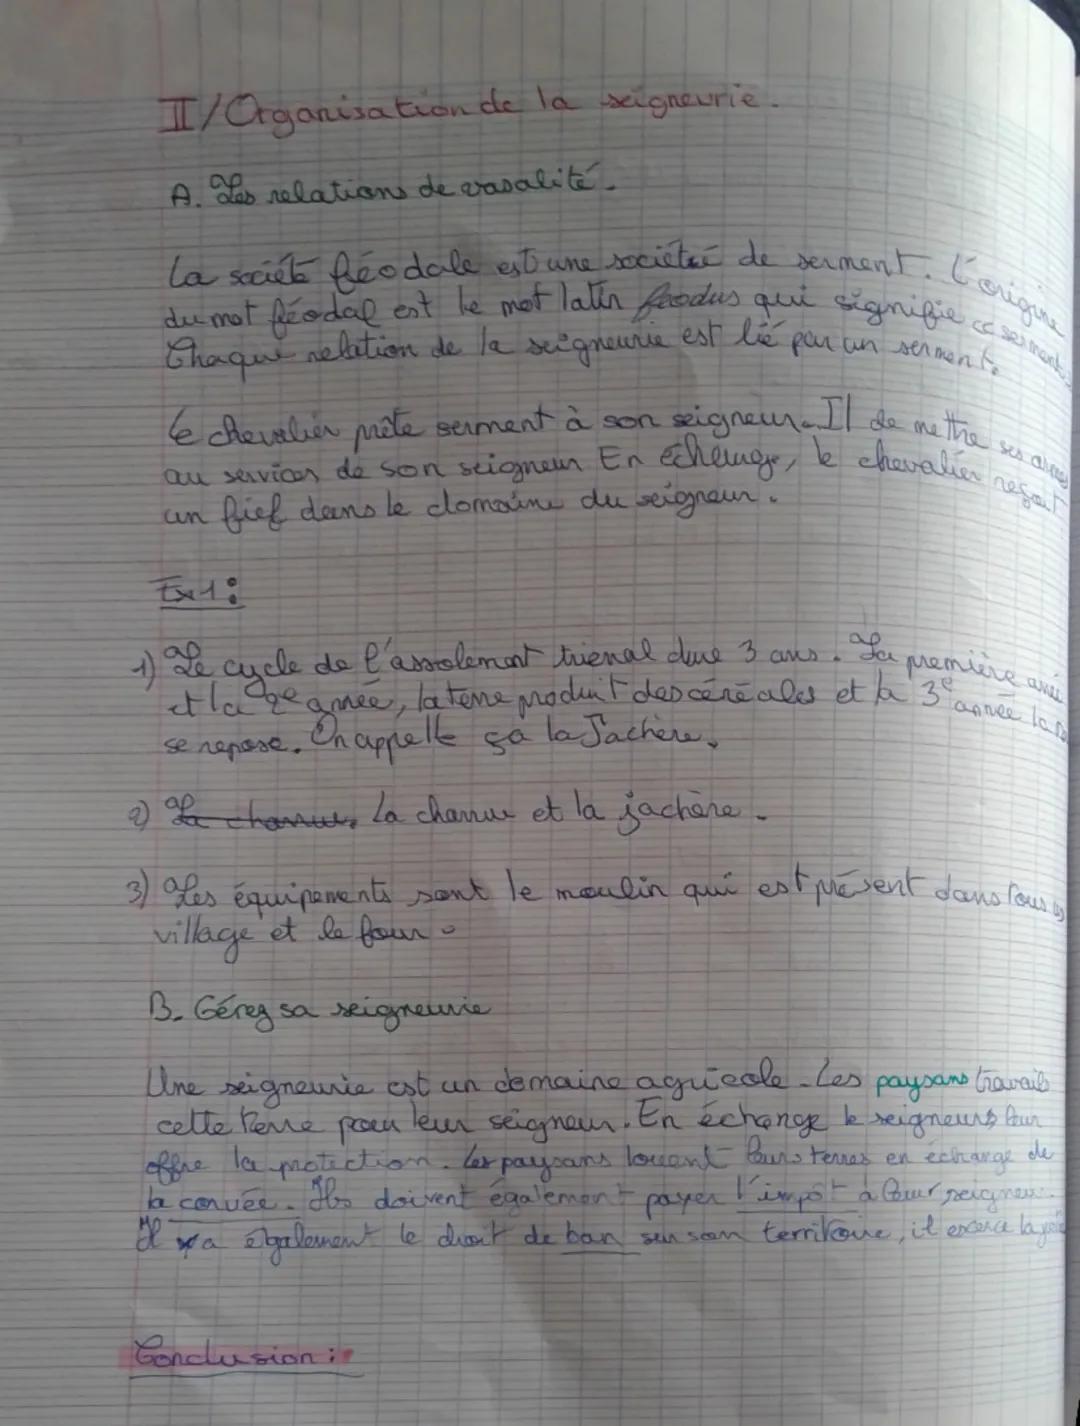 II/Organisation de la seigneurie.
A. Les relations de vasalité.
La société féodale est une société de serment. L'origine
du mot féodal est le mot latin foedus qui signifie "serment".
Chaque relation de la seigneurie est lié par un serment.
Le chevalier prête serment à son seigneur. Il de mettre ses armes
au services de son seigneur En échange, le chevalier reçoit
un fief dans le domaine du seigneur.
Ex 1:
1) Le cycle de l'assolement trienal dure 3 ans. La première année
et la 2e année, la terre produit des céréales et la 3e année la
se repose. On appelle ça la Jachère.
2) La charrue, La charrue et la jachère.
3) Les équipements sont le moulin qui est présent dans tous les
village et le four.
B. Gérez sa seigneurie
Une seigneurie est un domaine agricole. Les paysans travail
cette terre pour leur seigneur. En échange le seigneurs leur
offre la protection. Les paysans louent leurs terres en échange de
la corvée. Ils doivent également payer l'impôt à leur seigneur.
Il a également le droit de ban sur son territoire, il exerce la
Conclusion :